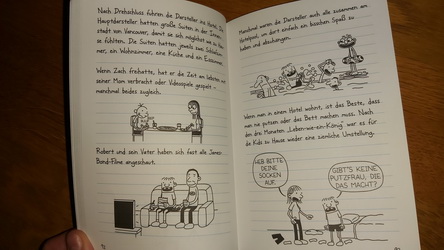 Nach Drehschluss fuhren die Darsteller ins Hotel. Die
Hauptdarsteller hatten große Suiten in der Innen-
stadt von Vancouver, damit sie sich möglichst wie zu Hau-
se fühlten. Die Suiten hatten jeweils zwei Schlafzim-
mer, ein Wohnzimmer, eine Küche und ein Esszimmer.
Wenn Zach freihatte, hat er die Zeit am liebsten mit
seiner Mom verbracht oder Videospiele gespielt –
manchmal beides zugleich.
Robert und sein Vater haben sich fast alle James-
Bond-Filme angeschaut.
Manchmal waren die Darsteller auch alle zusammen am
Hotelpool, um dort einfach ein bisschen Spaß zu
haben und abzuhängen.
Wenn man in einem Hotel wohnt, ist das Beste, dass
man nie putzen oder das Bett machen muss. Nach
den drei Monaten „Leben-wie-ein-König" war es für
die Kids zu Hause wieder eine ziemliche Umstellung.
HEB BITTE
DEINE
SOCKEN
AUF.
GIBT'S KEINE
PUTZFRAU, DIE
DAS MACHT?